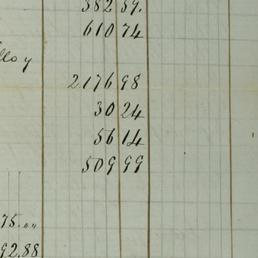 382 59.
610 74
llo y
2176 98
30 24
56 14
509 99
75.„„
92.88